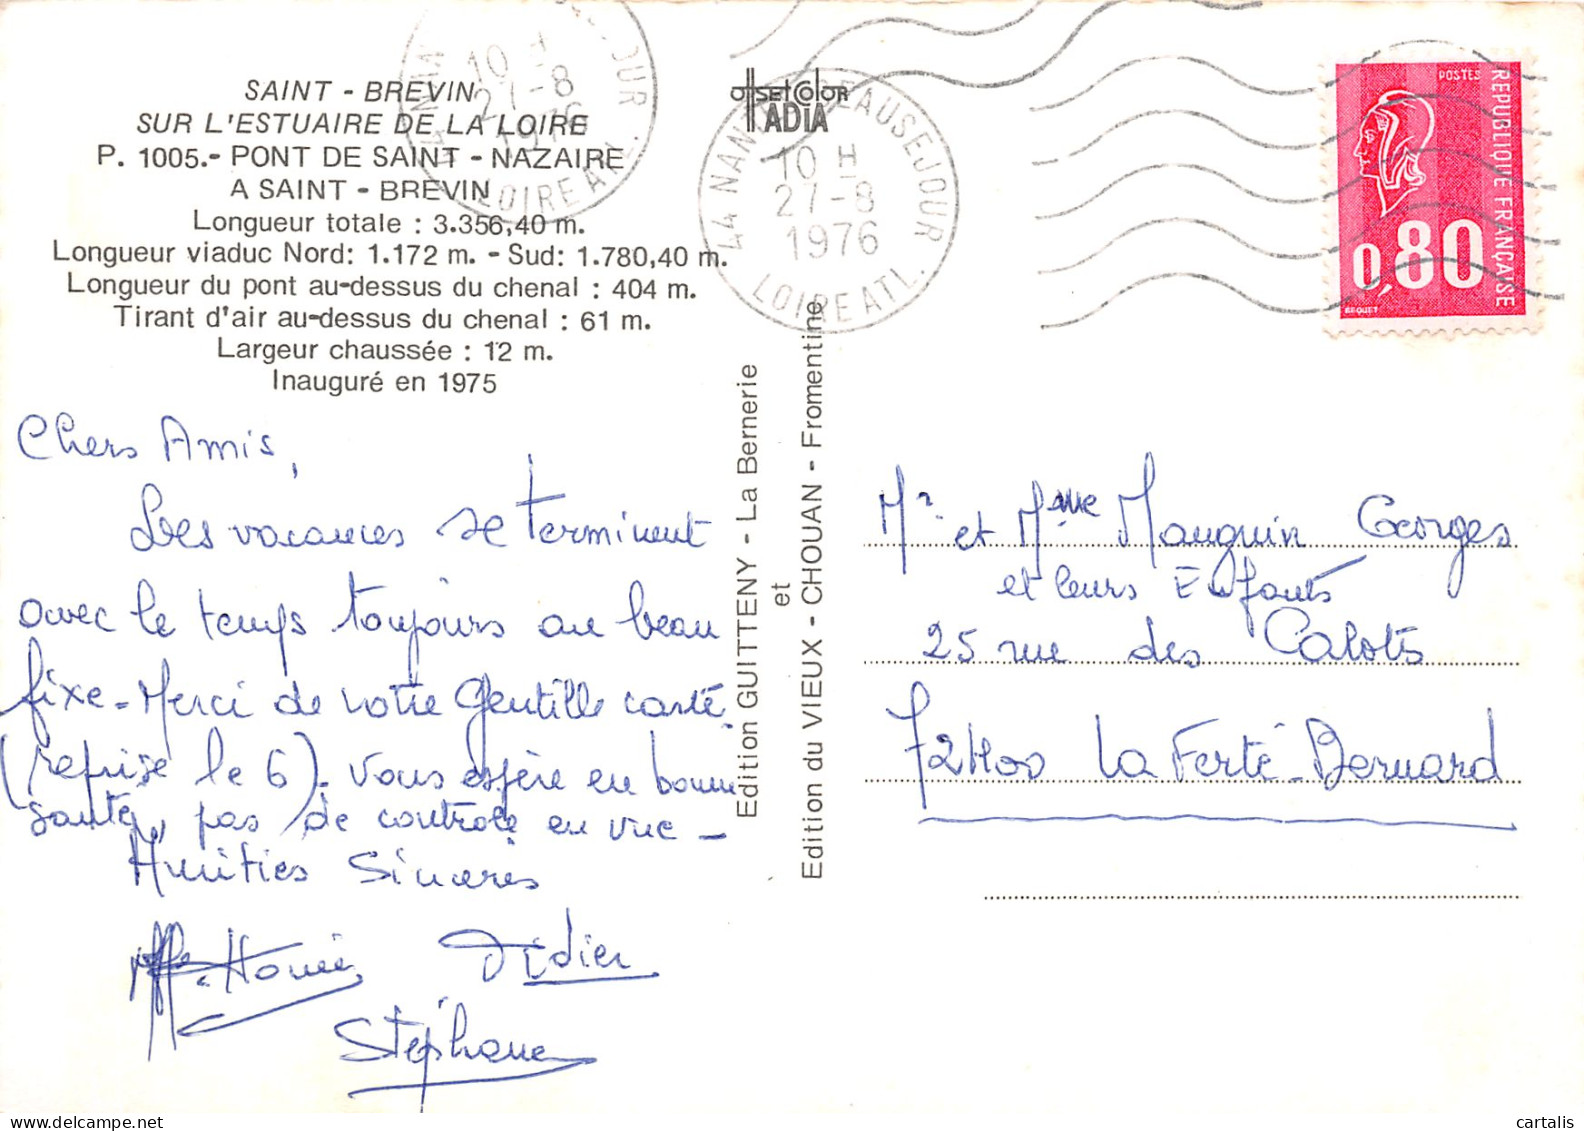 SAINT - BREVIN
SUR L'ESTUAIRE DE LA LOIRE
P. 1005.- PONT DE SAINT - NAZAIRE
A SAINT - BREVIN
Longueur totale : 3.356,40 m.
Longueur viaduc Nord: 1.172 m. - Sud: 1.780,40 m.
Longueur du pont au-dessus du chenal : 404 m.
Tirant d'air au-dessus du chenal : 61 m.
Largeur chaussée : 12 m.
Inauguré en 1975
Chers Amis,
Les vacances se terminent
avec le temps toujours au beau
fixe - Merci de votre Gentille carte
(reprise le 6). Vous espère en bonne
santé, pas de contrôle en vue -
Amitiés Sincères
Didier
Stéphane
offset color
IADIA
10 H
27-8
1976
LOIRE ATL.
44 NANTES BEAUSEJOUR
10 H
27-8
1976
LOIRE ATL.
Edition GUITTENY - La Bernerie
et
Edition du VIEUX - CHOUAN - Fromentine
POSTES
REPUBLIQUE FRANÇAISE
0,80
BEQUET
Mr et Mme Mauguin Georges
et leurs Enfants
25 rue des Calots
72400 La Ferté-Bernard
cartalis